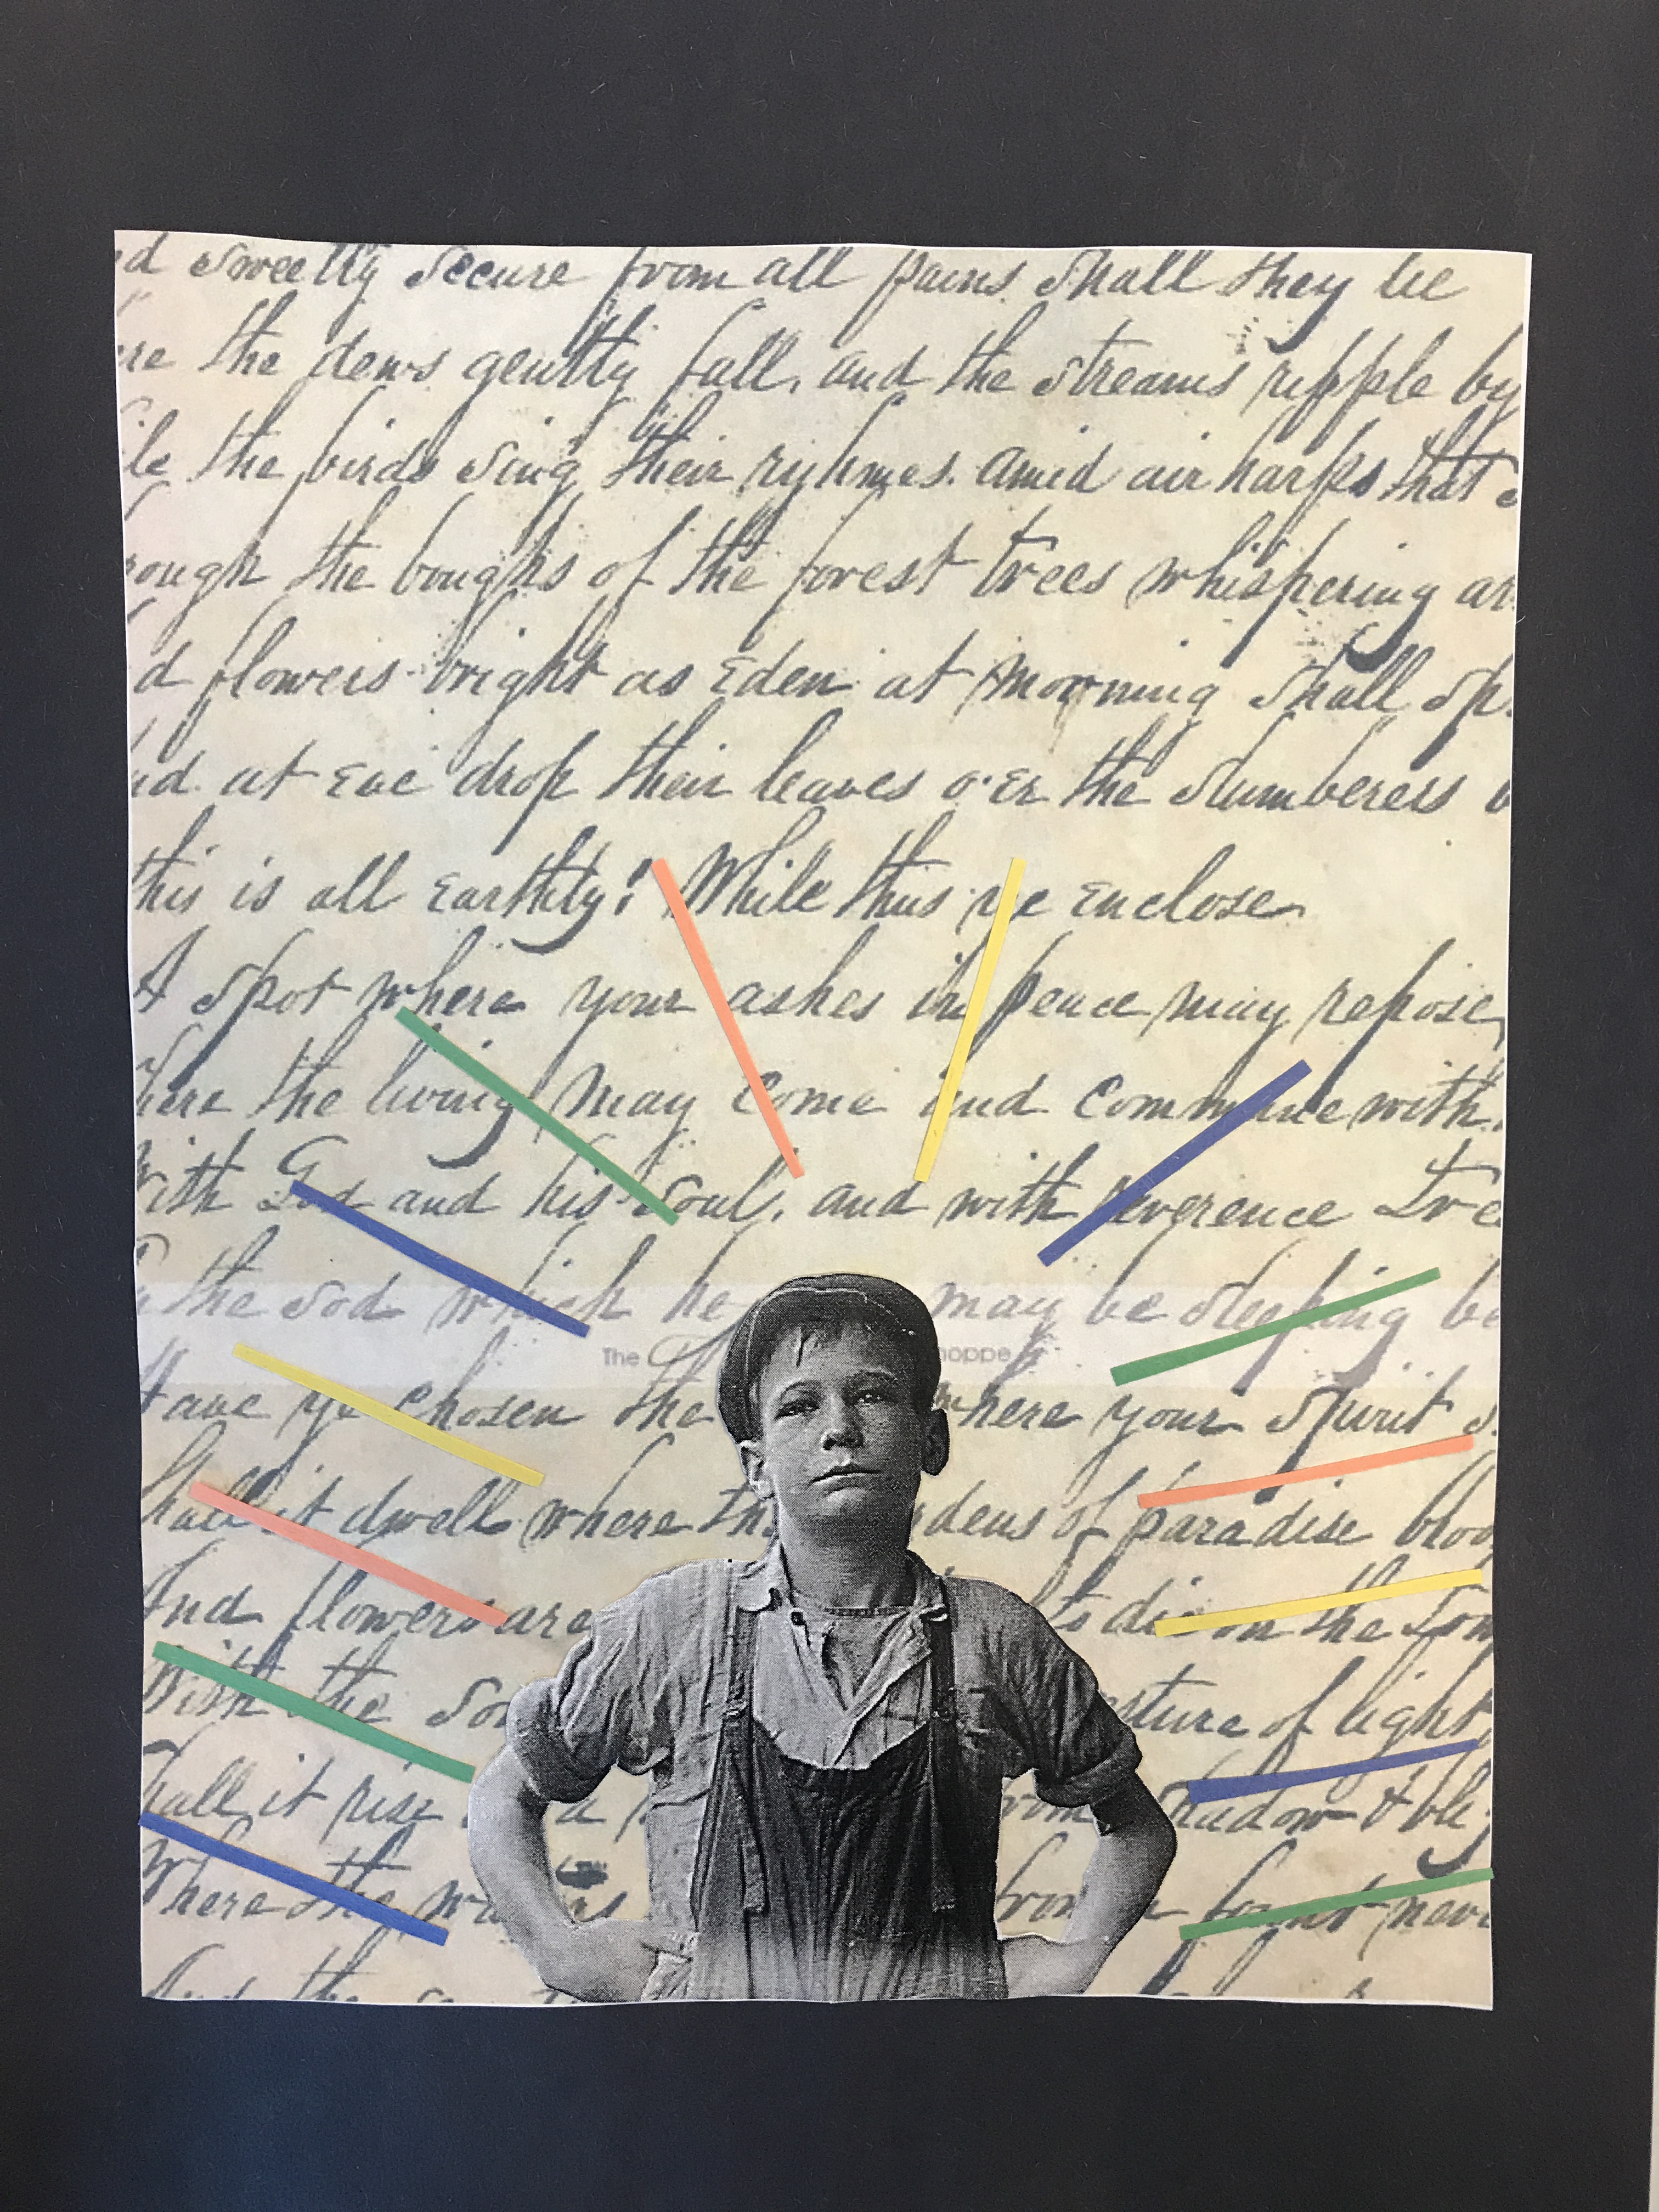 d sweetly secure from all pains shall they lie
re the dews gently fall, and the streams ripple by
ile the birds sing their ryhmes. amid air harps that
rough the boughs of the forest trees whispering ar
d flowers bright as Eden at morning shall sp
nd at Eve drop their leaves o'er the slumberers
this is all Earthly! While thus ye Enclose
A spot where your ashes in peace may repose,
here the living may come and commune with
With God and his soul, and with reverence tre
the sod which he may be sleeping be
Have ye chosen the where your spirit s
The hoppe
Shall it dwell where the dens of paradise bloo
And flowers are to die on the tom
With the son esture of light,
Shall it rise a from shadow & bli
Where the wa rs from fount neve
And the